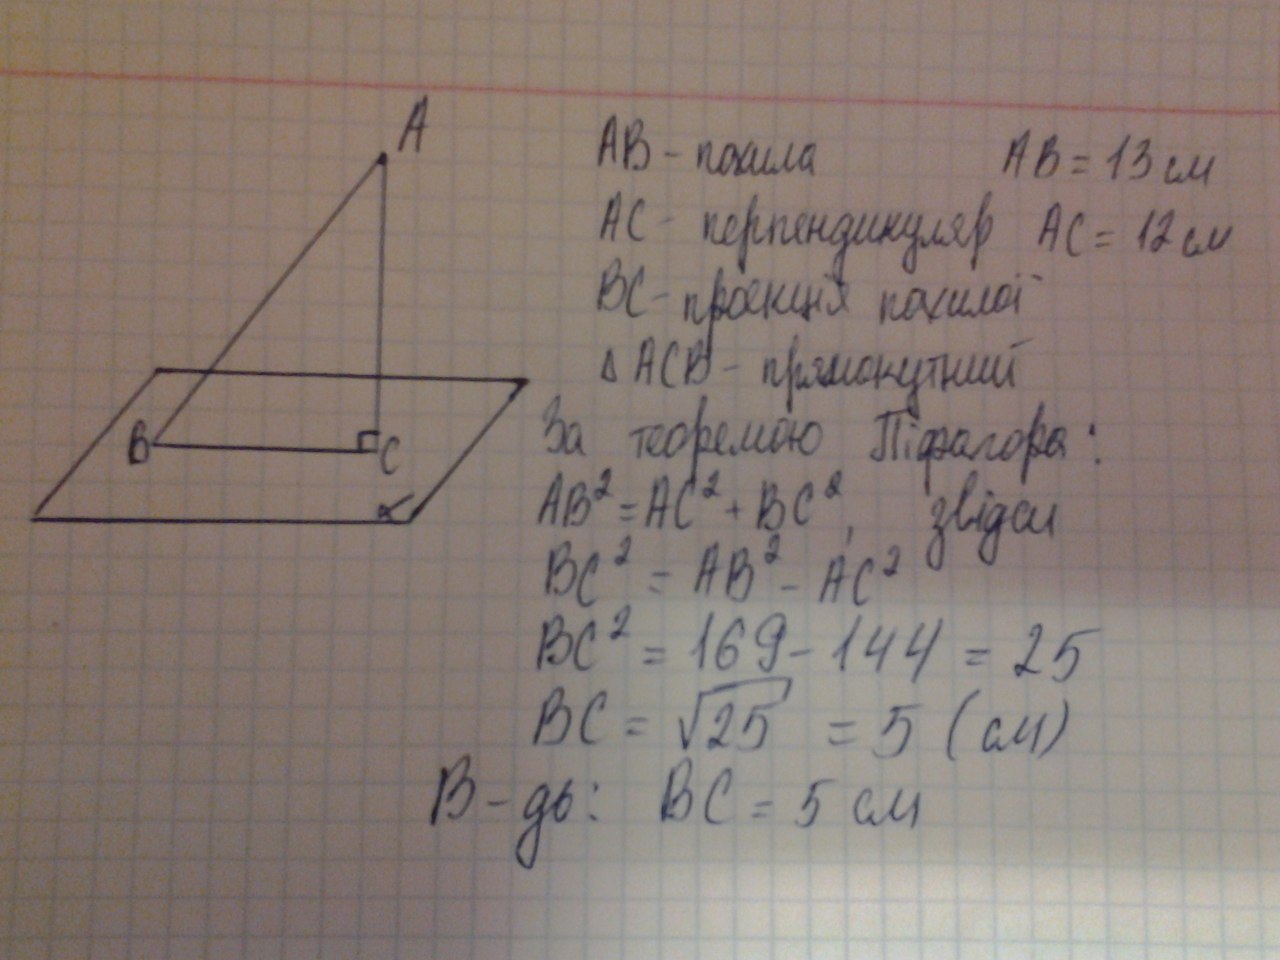 A
B
C
α
AB - похила AB = 13 см
AC - перпендикуляр AC = 12 см
BC - проекція похилої
Δ ACB - прямокутний
За теоремою Піфагора:
AB² = AC² + BC², звідси
BC² = AB² - AC²
BC² = 169 - 144 = 25
BC = √25 = 5 (см)
В-дь: BC = 5 см